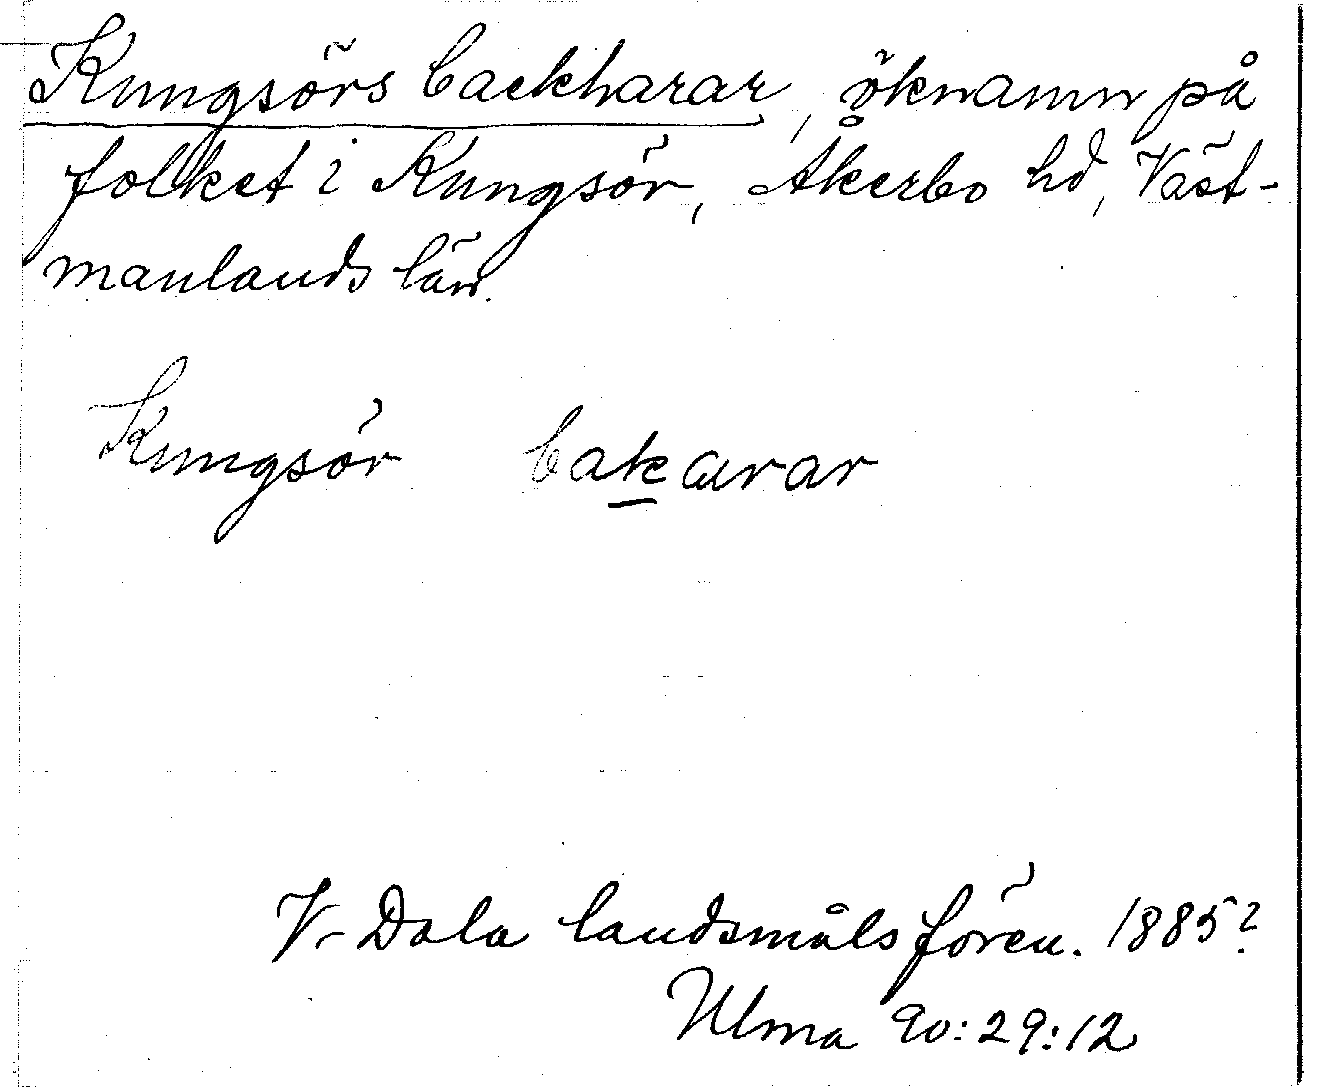 Kungsörs backharar, öknamn på
folket i Kungsör, Åkerbo hd, Väst-
manlands län.
Kungsör bakarar
V-Dala landsmålsfören. 1885?
Ulma 90:29:12